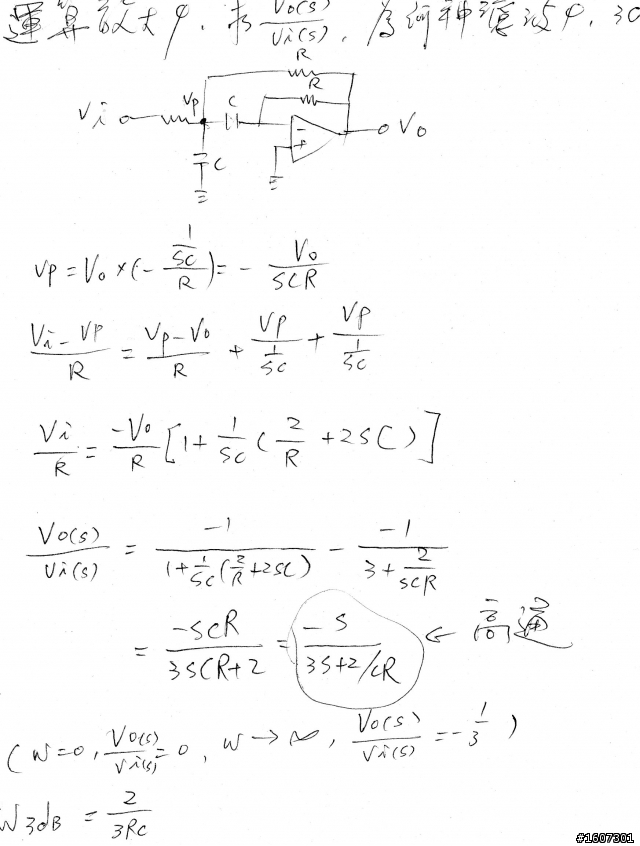 運算放大中. 求 Vo(s)/Vi(s), 為何種濾波中. 3C
R
R
Vp C
Vi Vo
- +
C
Vp = Vo × (- (1/SC)/R) = - Vo/SCR
(Vi - Vp)/R = (Vp - Vo)/R + Vp/(1/SC) + Vp/(1/SC)
Vi/R = -Vo/R [1 + 1/SC (2/R + 2SC)]
Vo(s)/Vi(s) = -1/(1 + 1/SC (2/R + 2SC)) - -1/(3 + 2/SCR)
= -SCR/(3SCR+2) = -S/(3S+2/CR) ← 高通
(W=0, Vo(s)/Vi(s) = 0, W → ∞, Vo(s)/Vi(s) = - 1/3)
W3dB = 2/3RC
#1607301